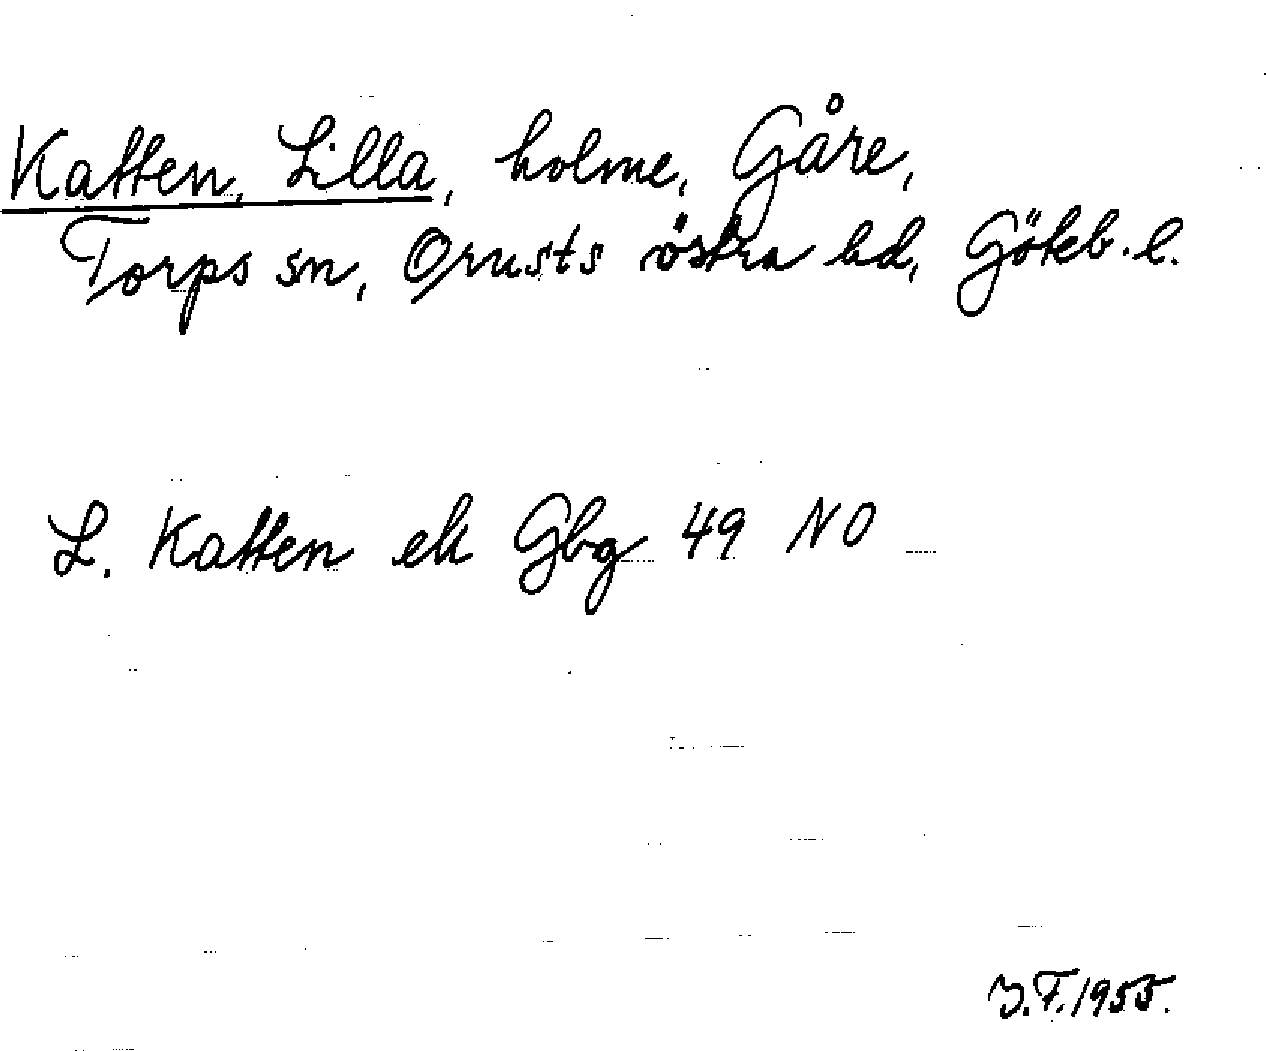 Katten, Lilla, holme, Gåre,
Torps sn, Orusts östra hd, Göteb. l.
L. Katten ek Gbg 49 NO
Y.F. 1955.